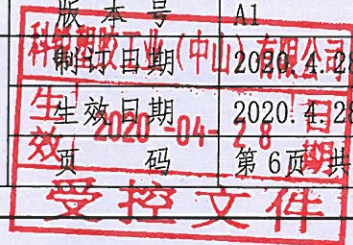 版本号 A1
制订日期 2020.4.28
生效日期 2020.4.2
页码 第6页 共
科 塑胶工业(中山)有限公司
生效 2020-04-28 日期
受控文件